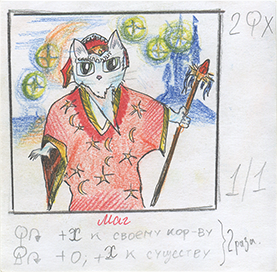 2 ФХ
1/1
Маг
+X к своему кор-ву
+0; +X к существу } 2 раза.